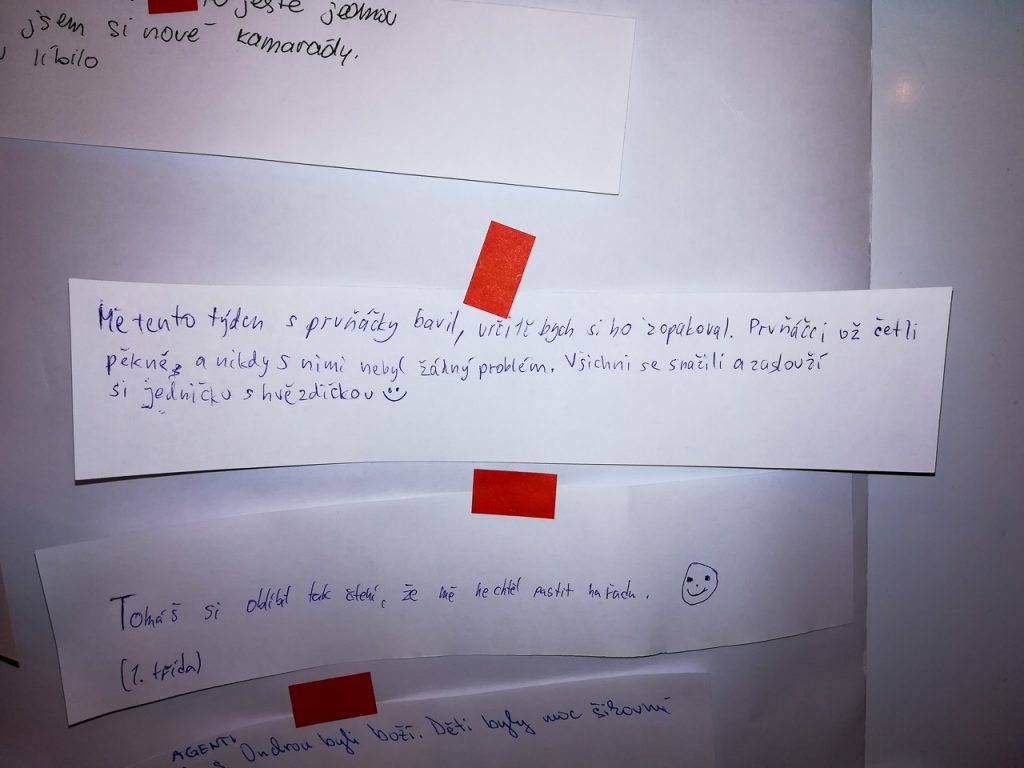 ještě jednou
jsem si nové kamarády.
líbilo
Mě tento týden s prvňáčky bavil, určitě bych si ho zopakoval. Prvňáčci už četli
pěkně, a nikdy s nimi nebyl žádný problém. Všichni se snažili a zaslouží
si jedničku s hvězdičkou
Tomáš si oblíbil tak čtení, že mě nechtěl pustit na řadu.
(1. třída)
AGENTI
Ondrou byli boží. Děti byly moc šikovné